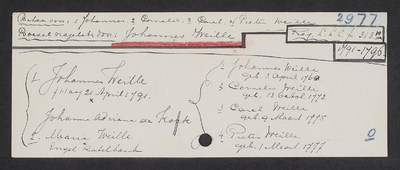 Behan von: 1 Johannes. 2 Cornelis. 3 Carel. 4 Pieter Weille
2977
Johannes Weille
1791-1796
1. Johannes Weille
21 April 1791.
x
Johanna Adriana de Kock
2. Maria Weille
Engel
1. Johannes Weille
geb. 3 April 1769
2 Cornelis Weille
geb. 13 1772.
3 Carel Weille
geb. 9 Maart 1775
4 Pieter Weille
geb. 1 Maart 1777
0